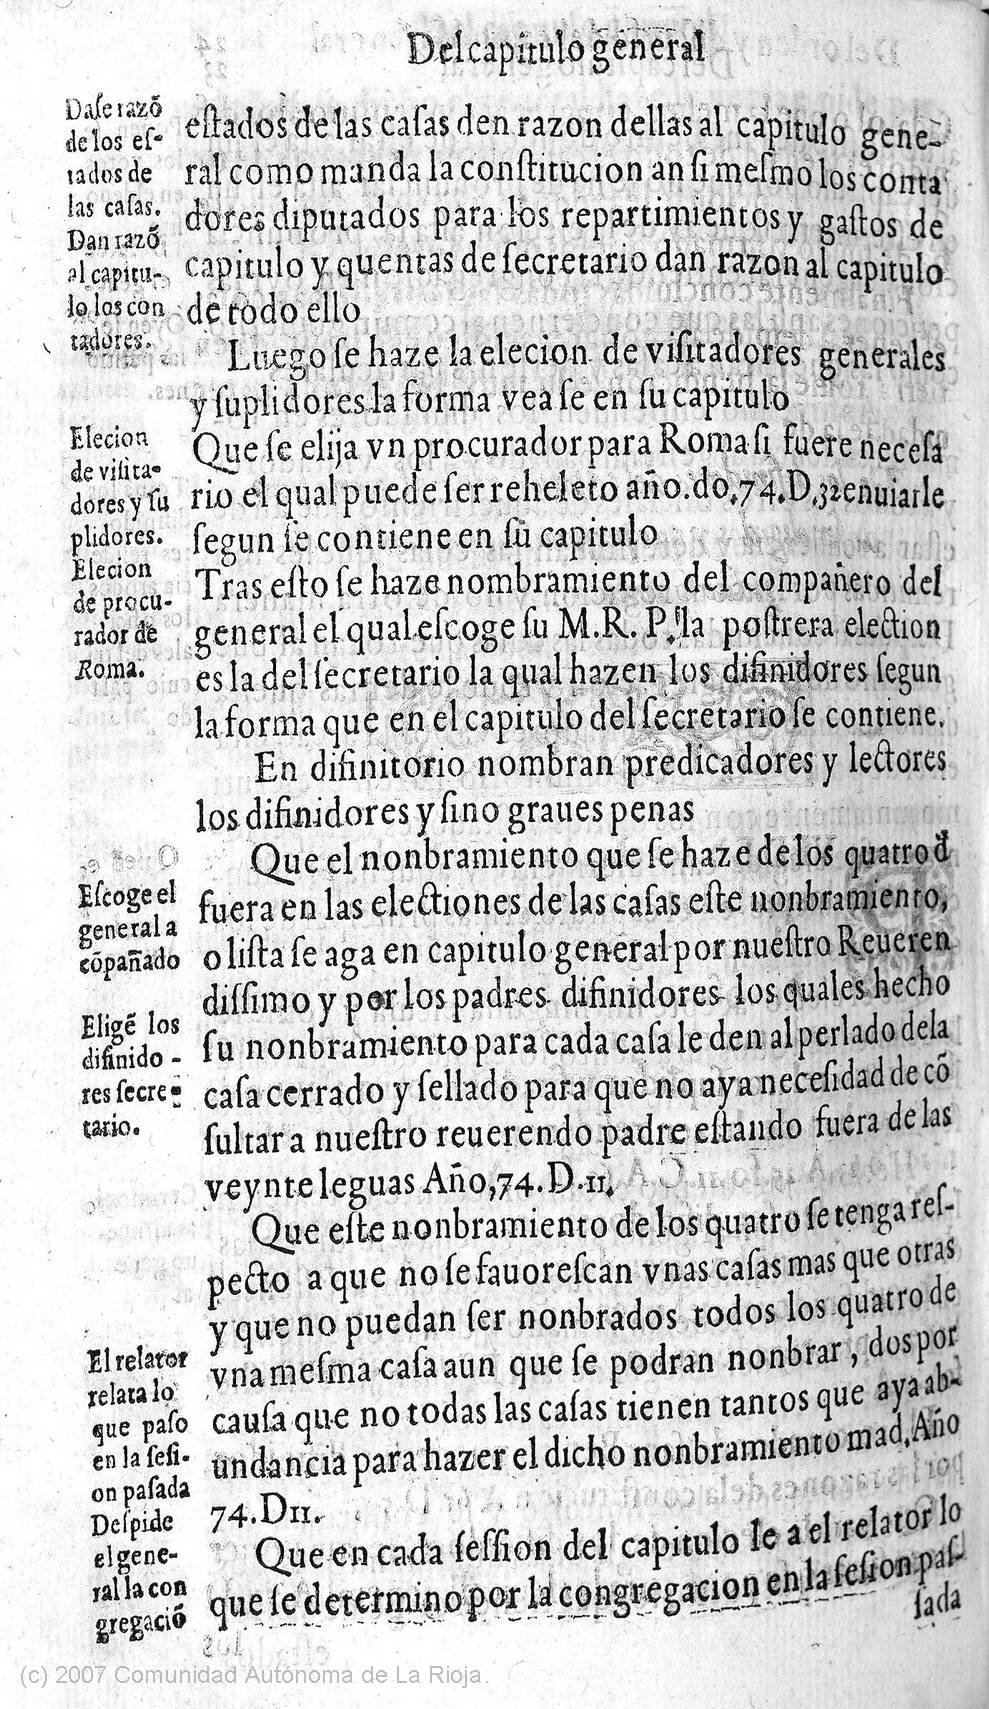 Del capitulo general
Daſe razõ
de los eſ-
tados de
las caſas.
Dan razõ
al capitu-
lo los con
tadores.
eſtados de las caſas den razon dellas al capitulo gene-
ral como manda la conſtitucion an ſi meſmo los conta
dores diputados para los repartimientos y gaſtos de
capitulo y quentas de ſecretario dan razon al capitulo
de todo ello
Luego ſe haze la elecion de viſitadores generales
y ſuplidores la forma vea ſe en ſu capitulo
Elecion
de viſita-
dores y ſu
plidores.
Elecion
de procu-
rador de
Roma.
Que ſe elija vn procurador para Roma ſi fuere neceſa
rio el qual puede ſer reheleto año. do. 74. D. 32 enuiarle
ſegun ſe contiene en ſu capitulo
Tras eſto ſe haze nombramiento del compañero del
general el qual eſcoge ſu M. R. P. la poſtrera election
es la del ſecretario la qual hazen los difinidores ſegun
la forma que en el capitulo del ſecretario ſe contiene.
En difinitorio nombran predicadores y lectores
los difinidores y ſino graues penas
Eſcoge el
general a
cõpañado
Eligẽ los
difinido -
res ſecre-
tario.
Que el nonbramiento que ſe haze de los quatro d
fuera en las electiones de las caſas eſte nonbramiento,
o liſta ſe aga en capitulo general por nueſtro Reueren
diſſimo y por los padres difinidores los quales hecho
ſu nonbramiento para cada caſa le den al perlado dela
caſa cerrado y ſellado para que no aya neceſidad de cõ
ſultar a nueſtro reuerendo padre eſtando fuera de las
veynte leguas Año, 74. D. 11.
Que eſte nonbramiento de los quatro ſe tenga reſ-
pecto a que no ſe fauoreſcan vnas caſas mas que otras
y que no puedan ſer nonbrados todos los quatro de
vna meſma caſa aun que ſe podran nonbrar, dos por
cauſa que no todas las caſas tienen tantos que aya ab-
undancia para hazer el dicho nonbramiento mad. Año
74. D11.
El relator
relata lo
que paſo
en la ſeſi-
on paſada
Deſpide
el gene-
ral la con
gregaciõ
Que en cada ſeſſion del capitulo le a el relator lo
que ſe determino por la congregacion en la ſeſion paſ-
ſada
(c) 2007 Comunidad Autónoma de La Rioja